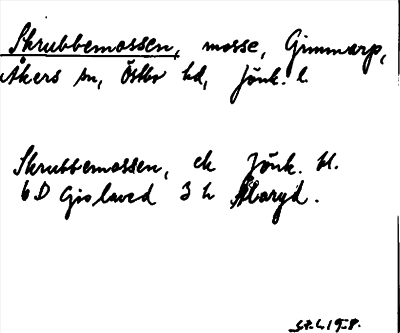 Skrubbemossen, mosse, Gimmarp,
Åkers sn, Östbo hd, Jönk. l.
Skrubbemossen, ek Jönk. bl.
6D Gislaved 3 h Åbaryd.